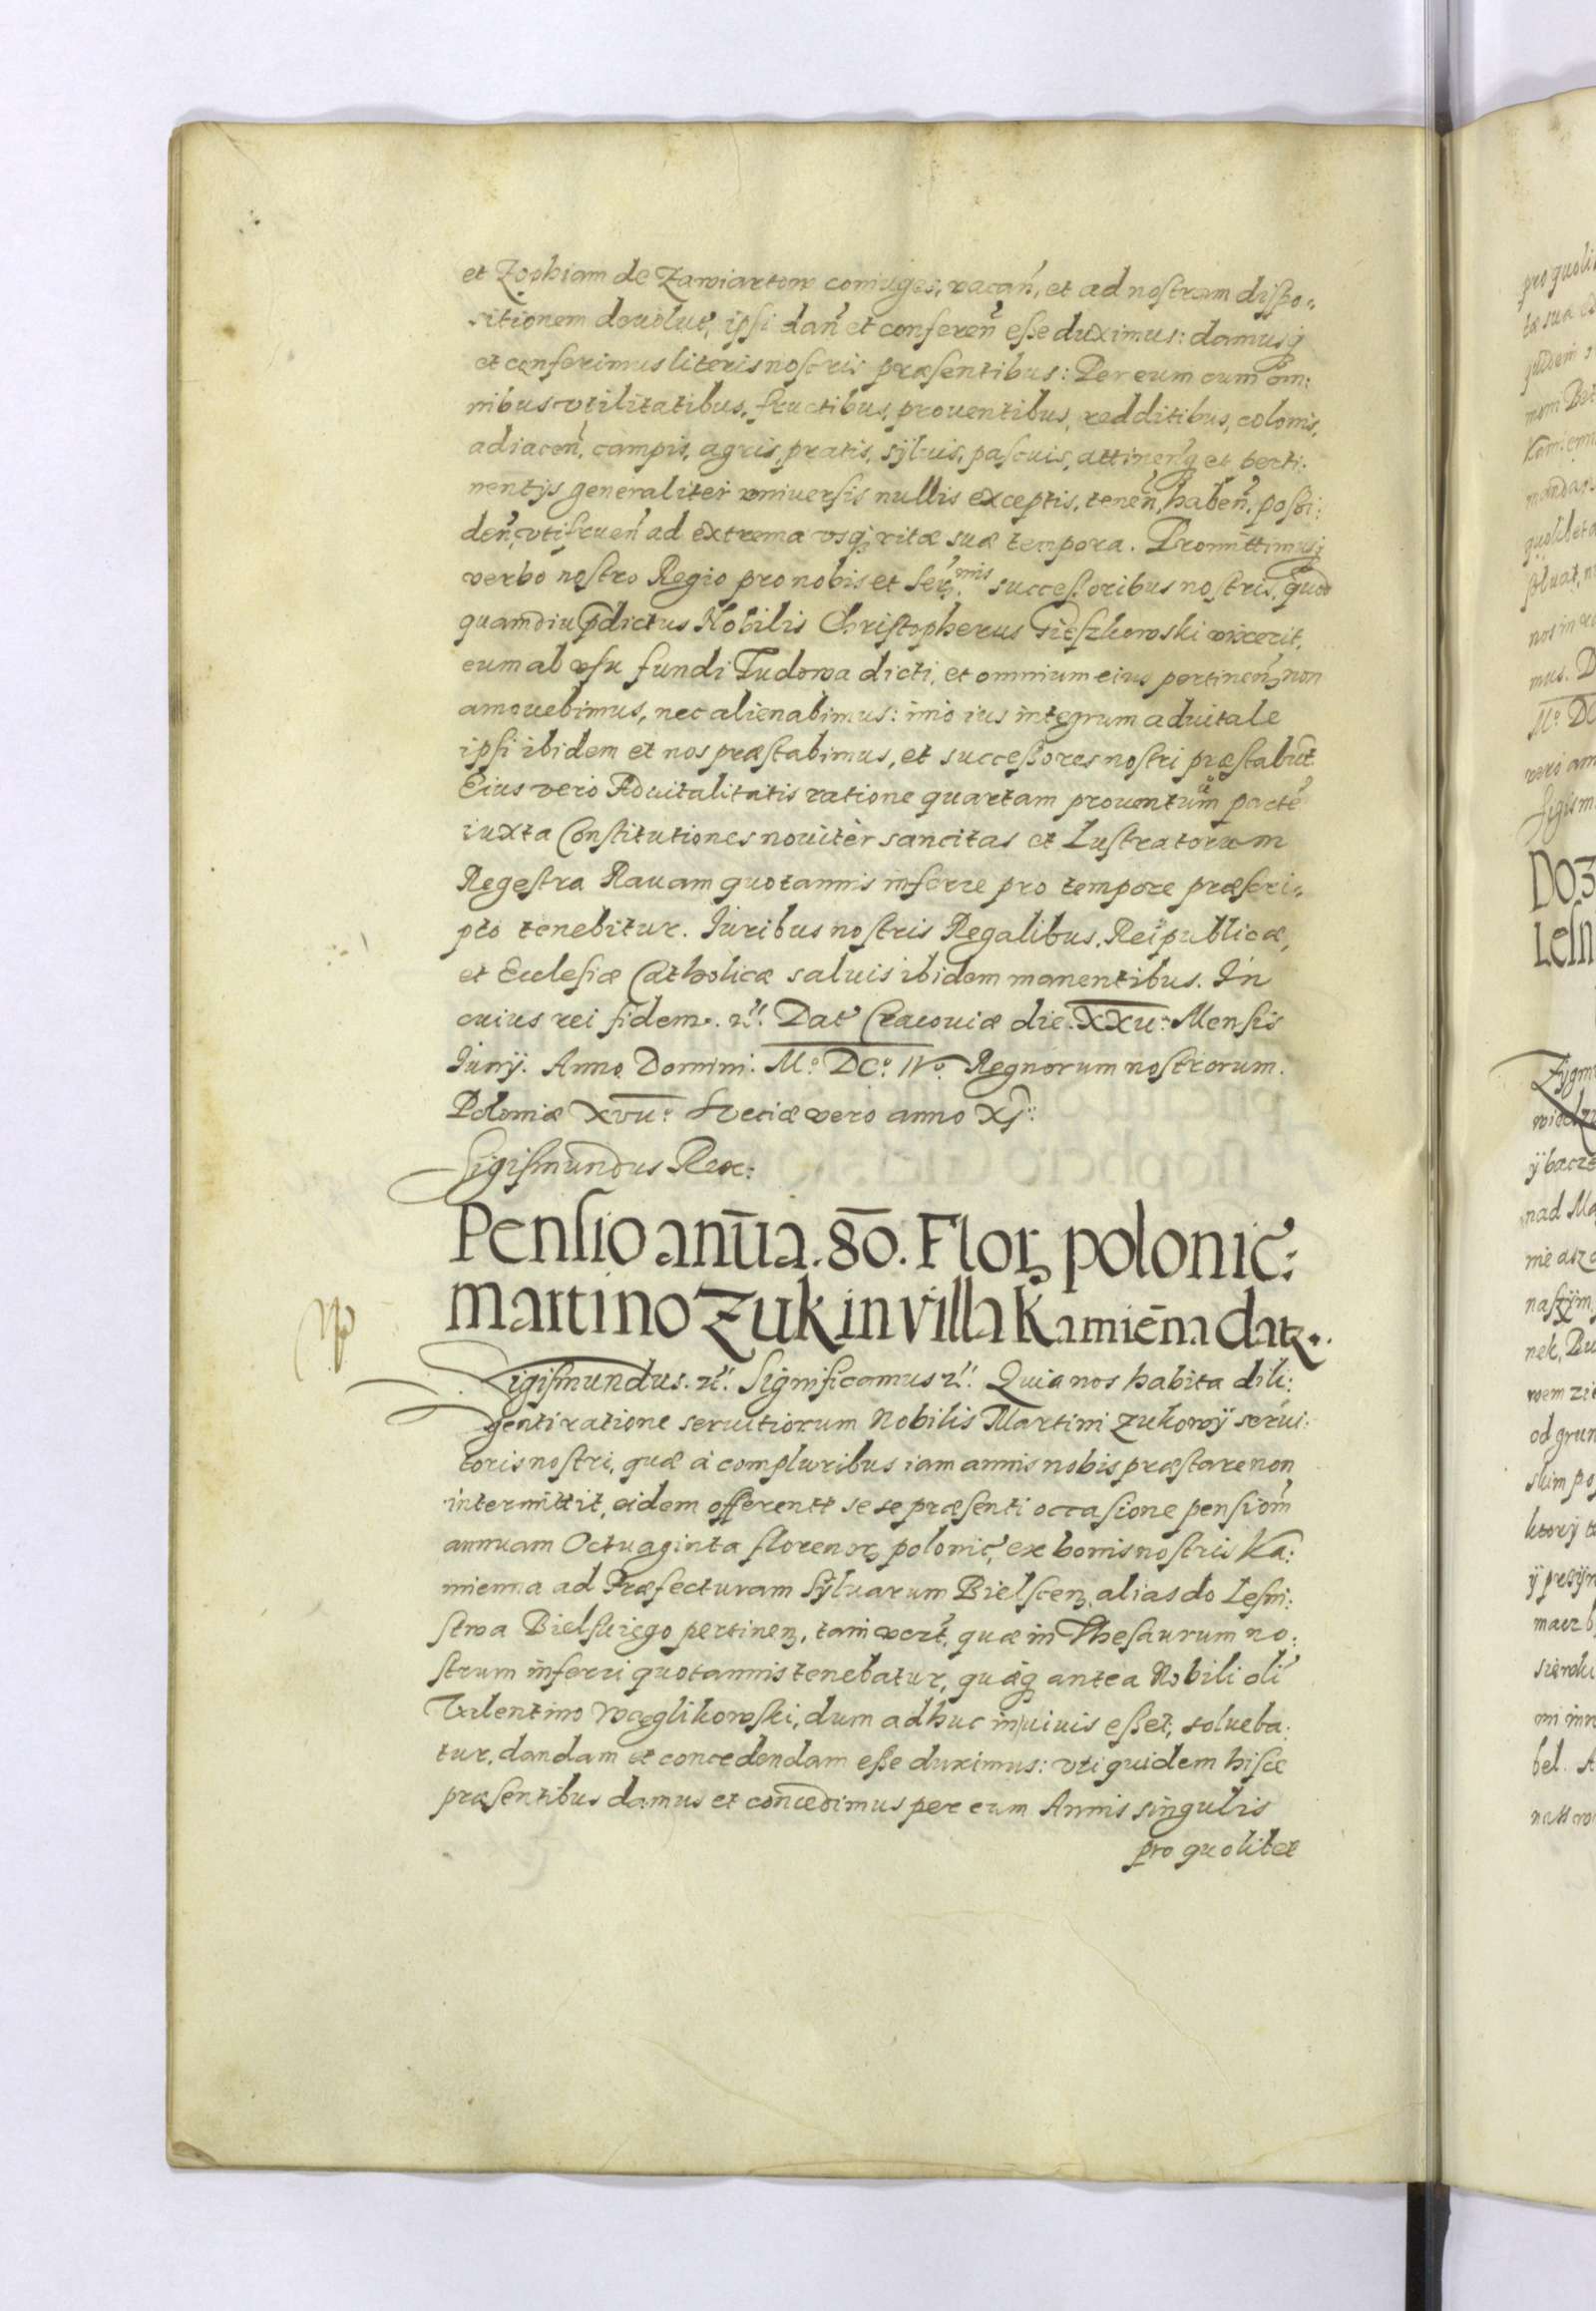 et Zophiam de Zawiartow coniuges, vacan̄, et ad nostram dispo-
sitionem devolut, ipsi dan̄ et conferen̄ esse duximus: damusq́
et conferimus literis nostris præsentibus: Per eum cum om:
nibus vtilitatibus, fructibus, prouentibus, redditibus, colonis,
adiacen̄, campis, agris, pratis, syluis, pascuis, attinen̄q́ et perti:
nentijs generaliter vniuersis nullis exceptis, tenen̄, haben̄, possi:
den̄, vtifruen̄ ad extrema vsq́ vitæ suæ tempora. Promittimusq́
verbo nostro Regio pro nobis et Ser.mis successoribus nostris, quod
quamdiu p̄dictus Nobilis Christopherus Gieszkowski vixerit,
eum ab vsu fundi Tudowa dicti, et omnium eius pertinen̄ non
amouebimus, nec alienabimus: imo ius integrum aduitale
ipsi ibidem et nos præstabimus, et successores nostri præstabūt
Eius vero Aduitalitatis ratione quartam prouentuum parte
iuxta Constitutiones nouiter sancitas et Lustratorum
Regestra Rauam quotannis inferre pro tempore præscri-
pto tenebitur. Iuribus nostris Regalibus, Reipublicæ,
et Ecclesiæ Catholicæ saluis ibidem manentibus. In
cuius rei fidem. rc̃. Dat Cracouiæ die. XXV. Mensis
Iunij. Anno Domini. Mº. DCº. IVº. Regnorum nostrorum.
Poloniæ XVII. Sueciæ vero anno XI.
Sigismundus Rex:
Pensio anūa. 80. Flor. polonic̄:
martino Zuk in villa Kamiēna datz.
Sigismundus. rc̃. Significamus rc̃. Quia nos habita dili:
genti ratione seruitiorum Nobilis Martini Zukowÿ serui:
toris nostri, quæ à compluribus iam annis nobis præstare non
intermittit, eidem offerente sese præsenti occasione pensiom̄
annuam Octuaginta florenor. polonic̄, ex bonis nostris Ka:
mienna ad Præfecturam Syluarum Bielscen, alias do Lesni:
stwa Bielskiego pertinen, quæ in Thesaurum no:
strum inferri quotannis tenebatur, quæq́ antea Nobili olī
Valentino Węglikowski, dum adhuc in viuis esset, solueba:
tur, dandam et concedendam esse duximus: vti quidem hisce
præsentibus damus et concedimus per eum Annis singulis
pro quolibet